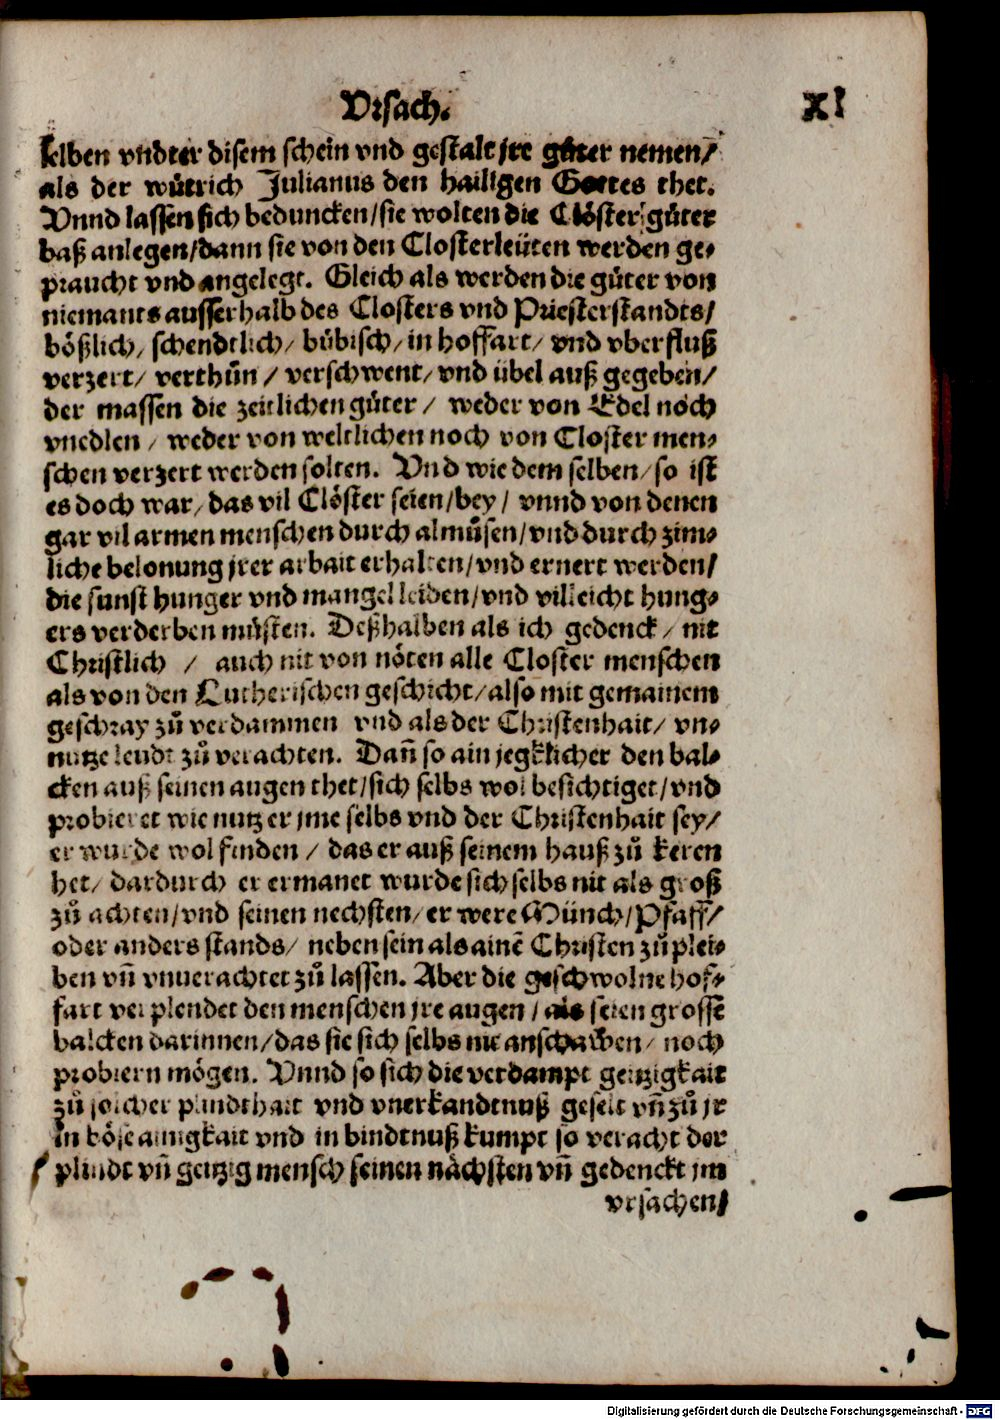 Vrsach. XI
selben vndter disem schein vnd gestalt jre gůter nemen/
als der wůtrich Julianus den hailigen Gottes thet.
Vnnd lassen sich beduncken/sie wolten die Clöster gůter
baß anlegen/dann sie von den Closterleüten werden ge-
praucht vnd angelegt. Gleich als werden die gůter von
niemants ausserhalb des Closters vnd Priesterstandts/
bößlich/ schendtlich/ bůbisch/ in hoffart/ vnd vberfluß
verzert/ verthůn / verschwent/ vnd übel auß gegeben/
der massen die zeitlichen gůter / weder von Edel noch
vnedlen / weder von weltlichen noch von Closter men-
schen verzert werden solten. Vnd wie dem selben/ so ist
es doch war/ das vil Clöster seien/bey/ vnnd von denen
gar vil armen menschen durch almůsen/vnd durch zim-
liche belonung jrer arbait erhalten/vnd ernert werden/
die sunst hunger vnd mangel leiden/vnd villeicht hung-
ers verderben můsten. Deßhalben als ich gedenck/ nit
Christlich / auch nit von nöten alle Closter menschen
als von den Lutherischen geschicht/ also mit gemainem
geschray zů verdammen vnd als der Christenhait/ vn-
nutze leudt zů verachten. Dañ so ain jegklicher den bal-
cken auß seinen augen thet/sich selbs wol besichtiget/vnd
probieret wie nutz er jme selbs vnd der Christenhait sey/
er wurde wol finden / das er auß seinem hauß zů keren
het/ dardurch er ermanet wurde sich selbs nit als groß
zů achten/vnd seinen nechsten/ er were Münch/Pfaff/
oder anders stands/ neben sein als ainē Christen zů plei-
ben vñ vnuerachtet zů lassen. Aber die geschwolne hof-
fart verplendet den menschen jre augen / als seien grosse
balcken darinnen/das sie sich selbs nit anschawen/ noch
probiern mögen. Vnnd so sich die verdampt geitzigkait
zů solcher plindthait vnd vnerkandtnuß geselt vñ zů jr
in böse ainigkait vnd in bindtnuß kumpt so veracht der
plindt vñ geitzig mensch seinen nächsten vñ gedenckt jm
vrsachen/
Digitalisierung gefördert durch die Deutsche Forschungsgemeinschaft - DFG